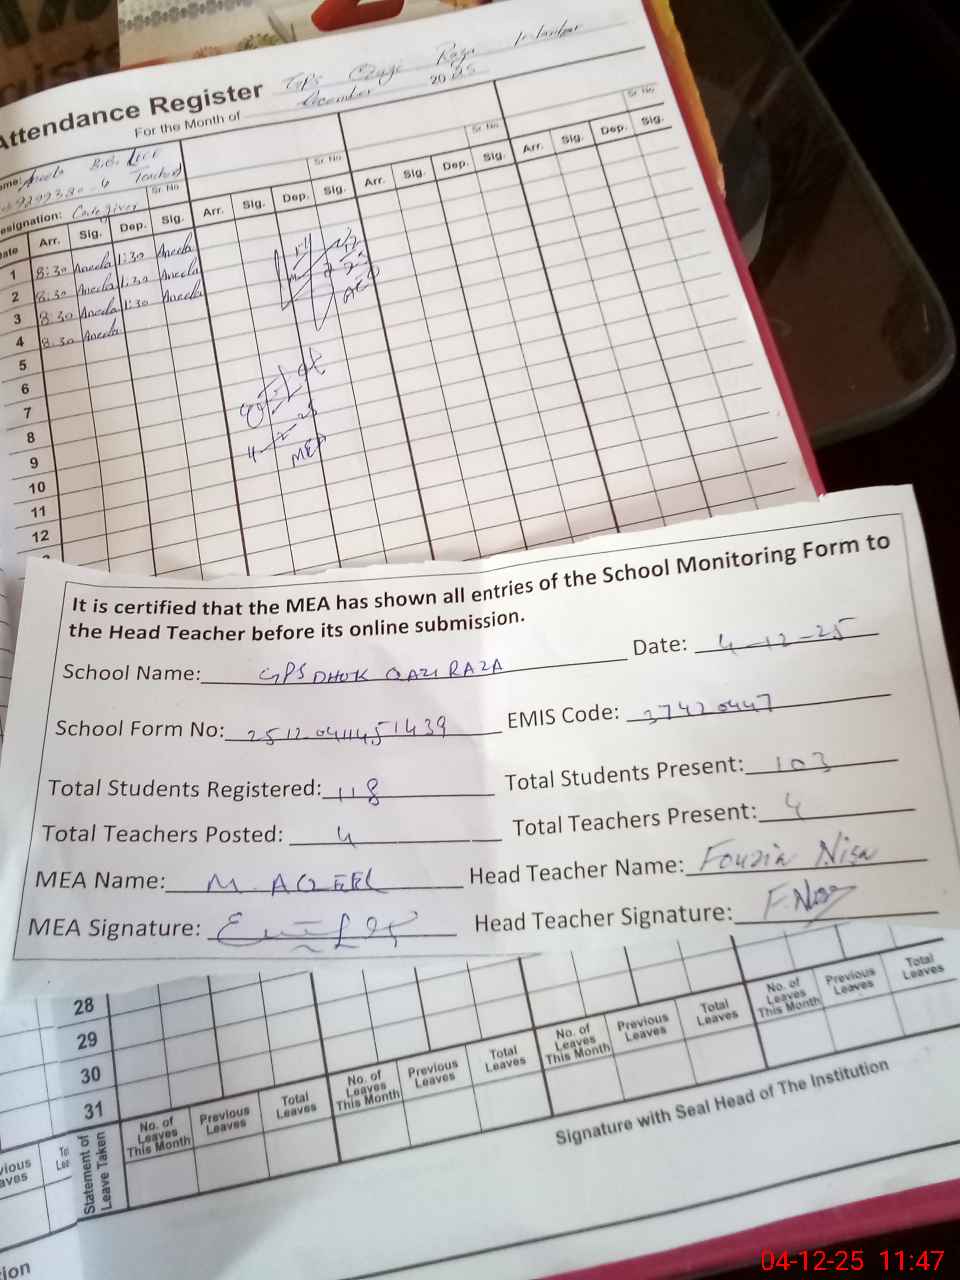 Attendance Register GPS Qazi Raza
For the Month of December 2025
Aneela
Teacher
Designation: Caregiver
Sr. No Sr. No Sr. No Sr. No
Arr. Sig. Dep. Sig. Arr. Sig. Dep. Sig. Arr. Sig. Dep. Sig. Arr. Sig. Dep. Sig.
1 8:30 Aneela 1:30 Aneela
2 8:30 Aneela 1:30 Aneela
3 8:30 Aneela 1:30 Aneela
4 8:30 Aneela
5
6
7
8
9
10
11
12
AEO
MEA
It is certified that the MEA has shown all entries of the School Monitoring Form to
the Head Teacher before its online submission.
School Name: GPS DHOK QAZI RAZA Date: 4-12-25
School Form No: 25120411451439 EMIS Code: 37420447
Total Students Registered: 118 Total Students Present: 103
Total Teachers Posted: 4 Total Teachers Present: 4
MEA Name: M. AQEEL Head Teacher Name: Fouzia Nisa
MEA Signature: Head Teacher Signature:
28
29
30
31
Statement of Leave Taken
No. of Leaves This Month Previous Leaves Total Leaves No. of Leaves This Month Previous Leaves Total Leaves No. of Leaves This Month Previous Leaves Total Leaves No. of Leaves This Month Previous Leaves Total Leaves
Signature with Seal Head of The Institution
04-12-25 11:47